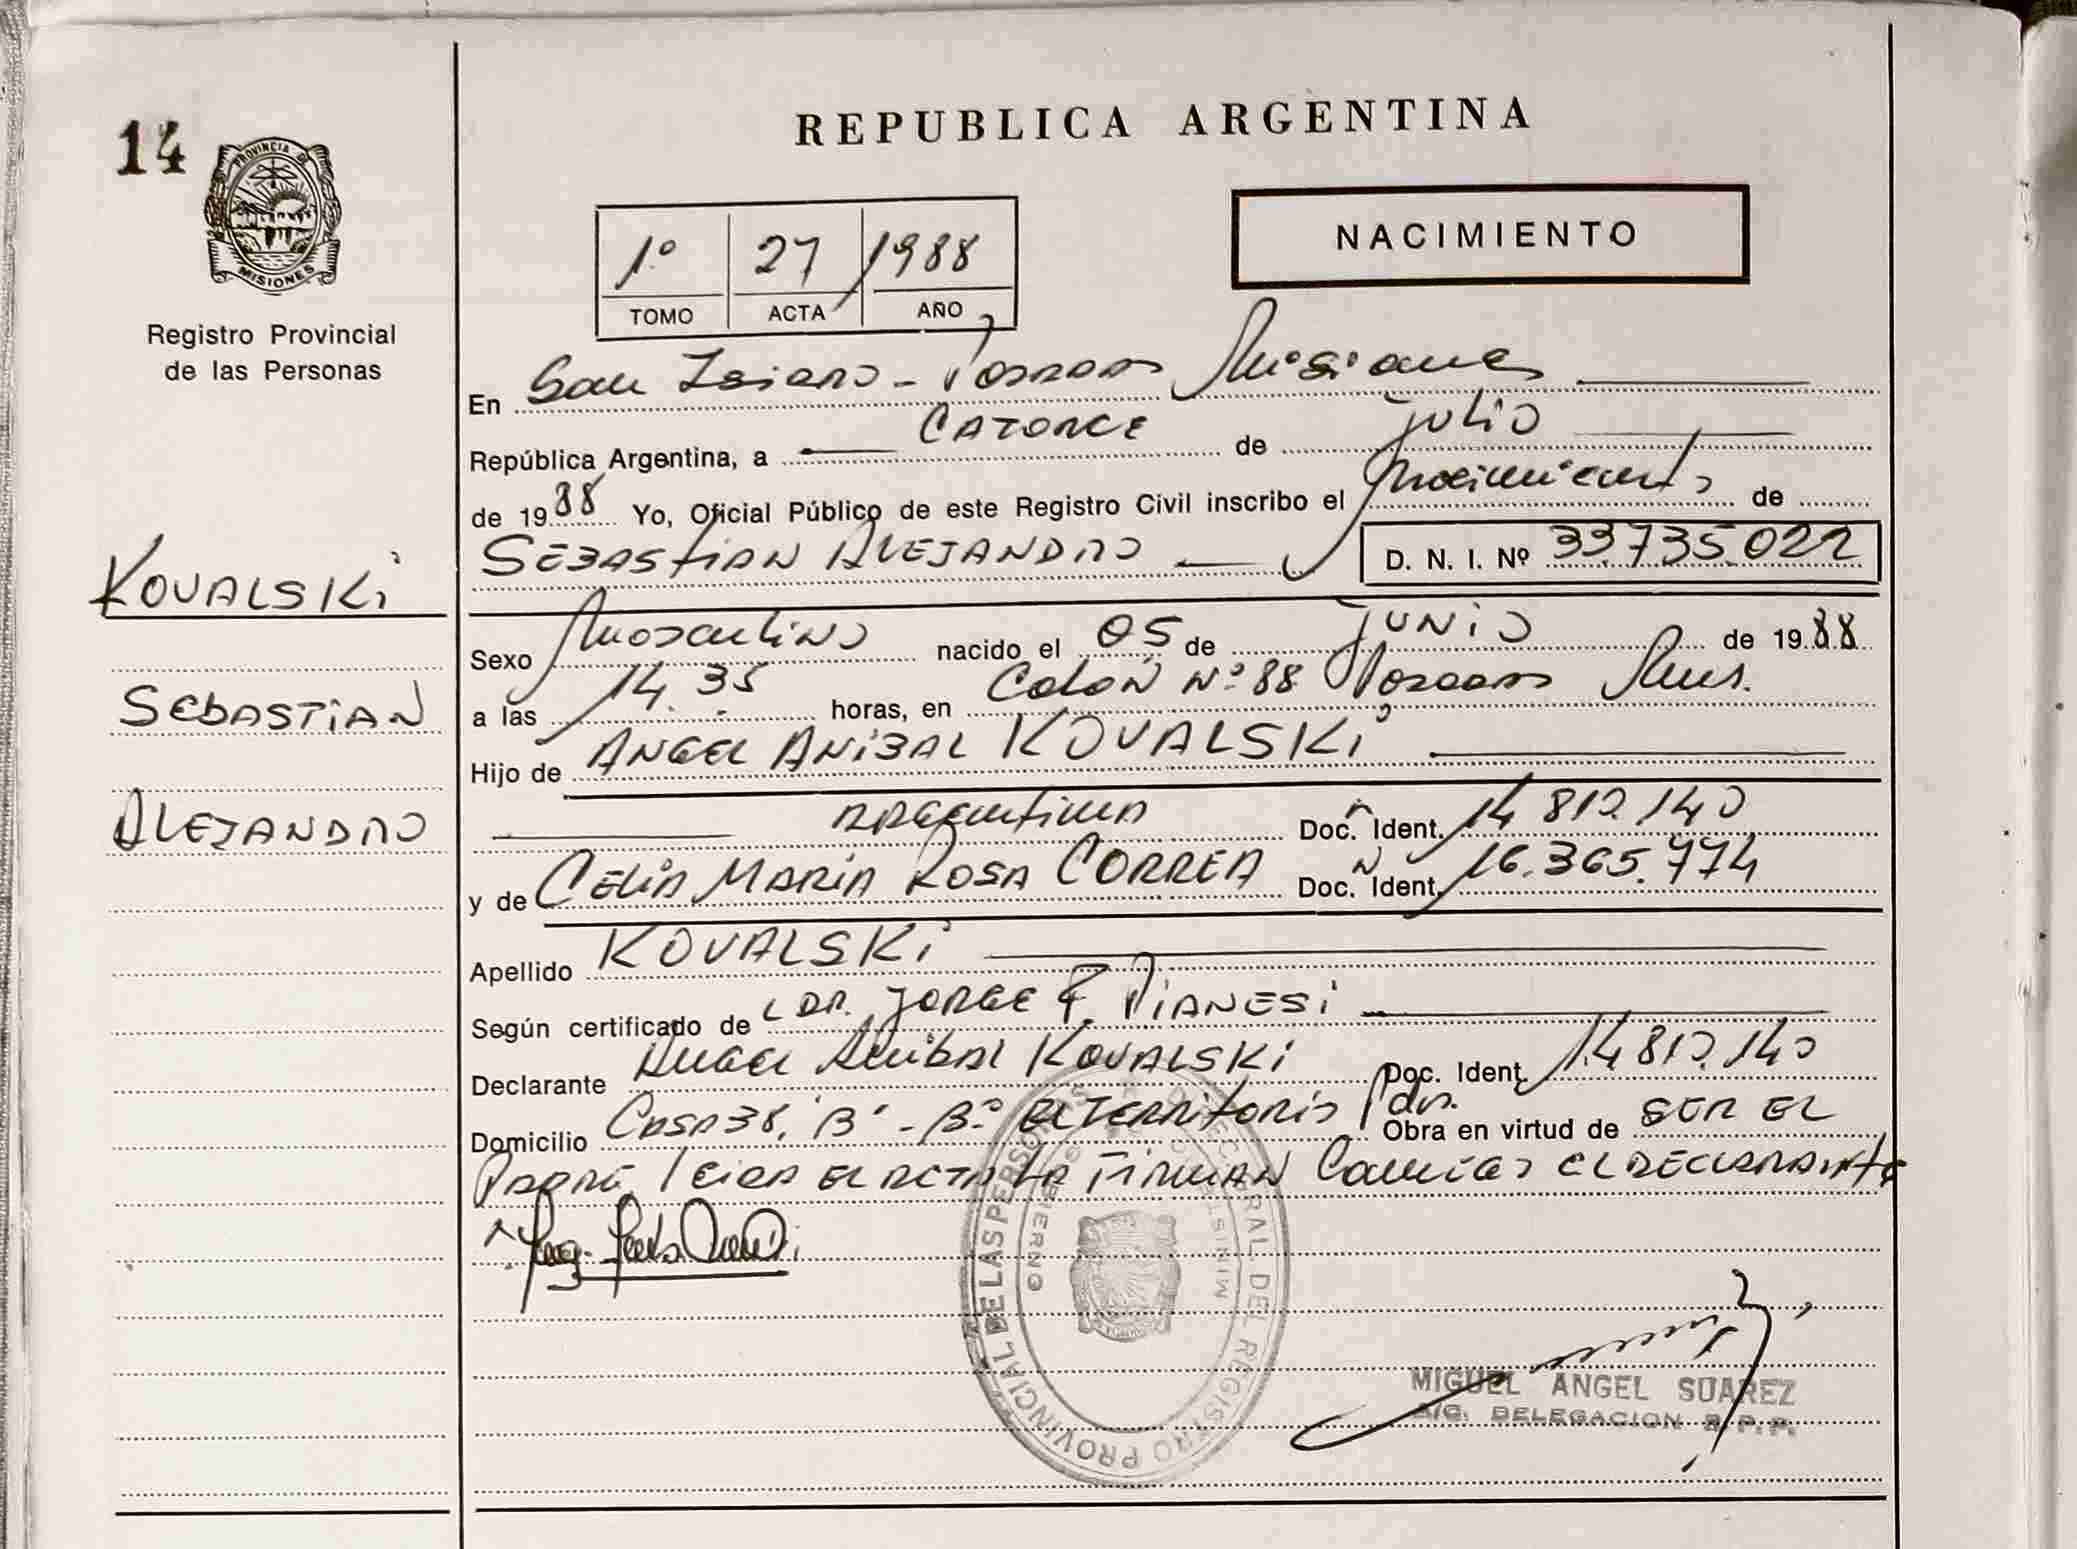 14
PROVINCIA DE
MISIONES
Registro Provincial
de las Personas
KOVALSKi
SEBASTIAN
ALEJANDRO
REPUBLICA ARGENTINA
1º 27 1988
TOMO ACTA AÑO
NACIMIENTO
En San Isidro - Posadas Misiones
República Argentina, a CATORCE de julio
de 1988 Yo, Oficial Público de este Registro Civil inscribo el nacimiento de
SEBASTIAN ALEJANDRO D. N. I. Nº 33.735.022
Sexo Masculino nacido el 05 de junio de 1988
a las 14.35 horas, en Colón Nº 88 Posadas Mnes.
Hijo de ANGEL ANIBAL KOVALSKi
argentino Doc. Ident. 14 812.140
y de CELIA MARIA ROSA CORREA Doc. Ident. 16.365.774
Apellido KOVALSKi
Según certificado de DR. JORGE F. PIANESI
Declarante Angel Anibal KOVALSKi Doc. Ident. 14 812.140
Domicilio Casa 38, "B" - Bº El Territorio Pdas. Obra en virtud de SER EL
Papá leida el acta la firman conmigo el declarante
DIRECCION GENERAL DEL REGISTRO PROVINCIAL DE LAS PERSONAS
MINISTERIO DE GOBIERNO
MIGUEL ANGEL SUAREZ
A/C. DELEGACION R.P.P.